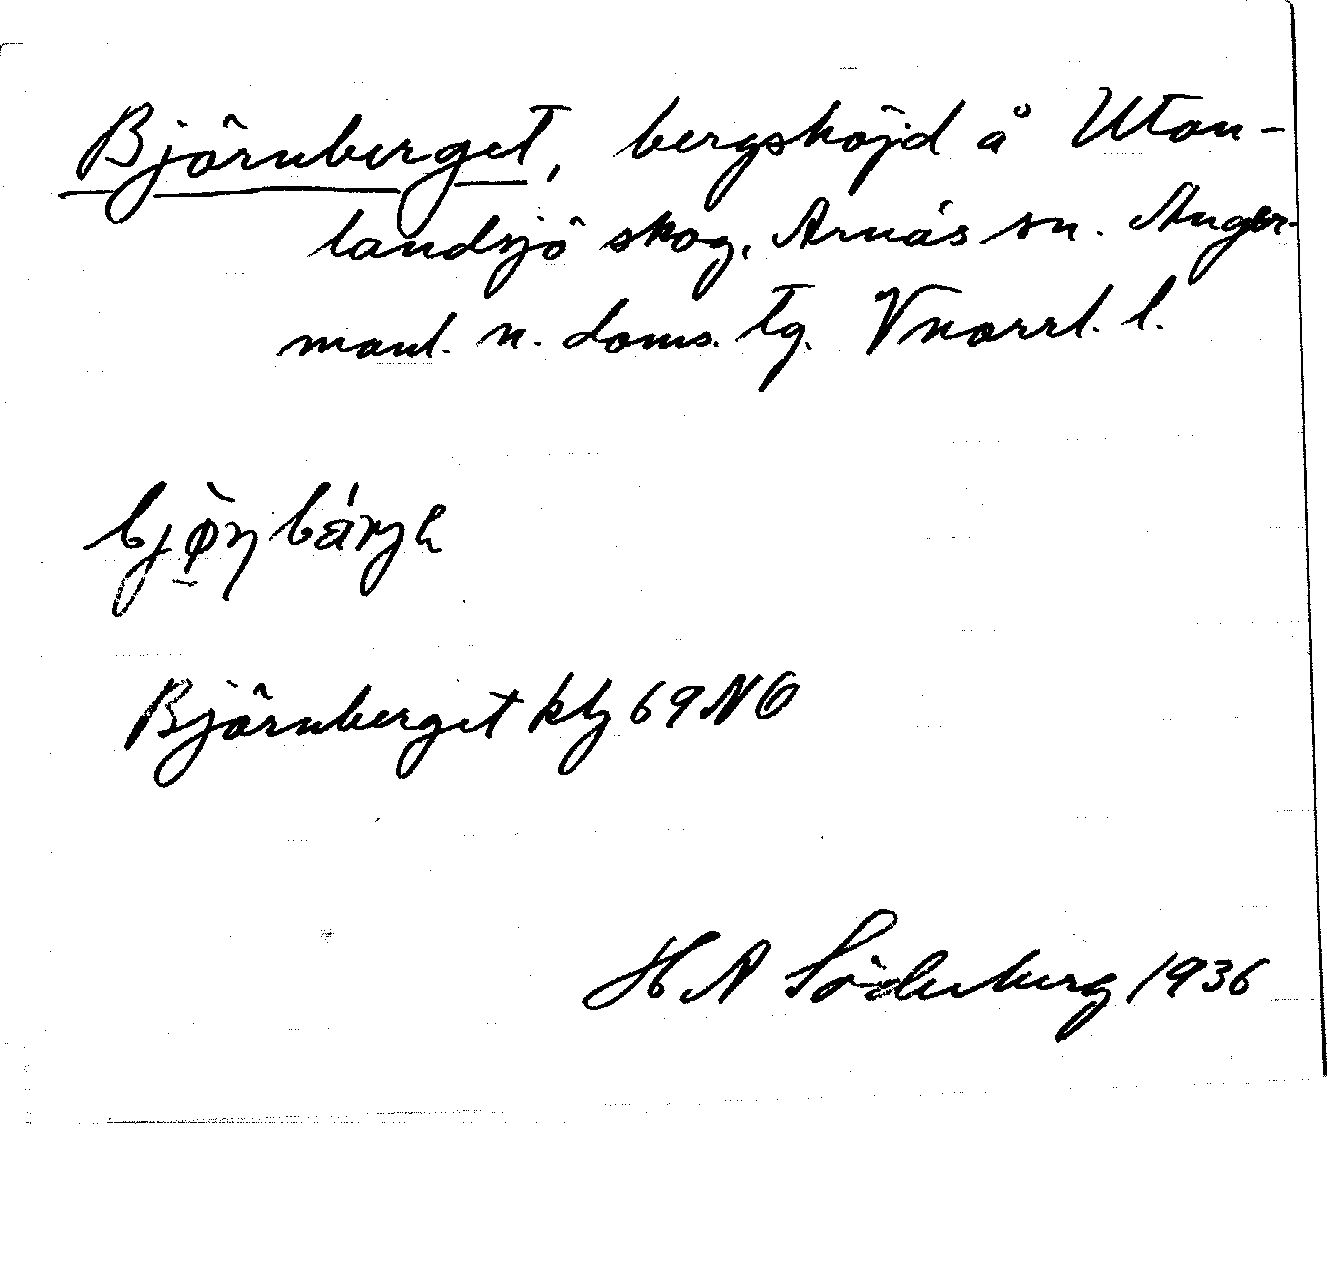 Björnberget, bergshöjd å Utan-
landsjö skog, Arnäs sn. Ånger-
manl. n. doms. tg. Vnorrl. l.
Björnberget kbl 69 NO
H A Söderberg 1936